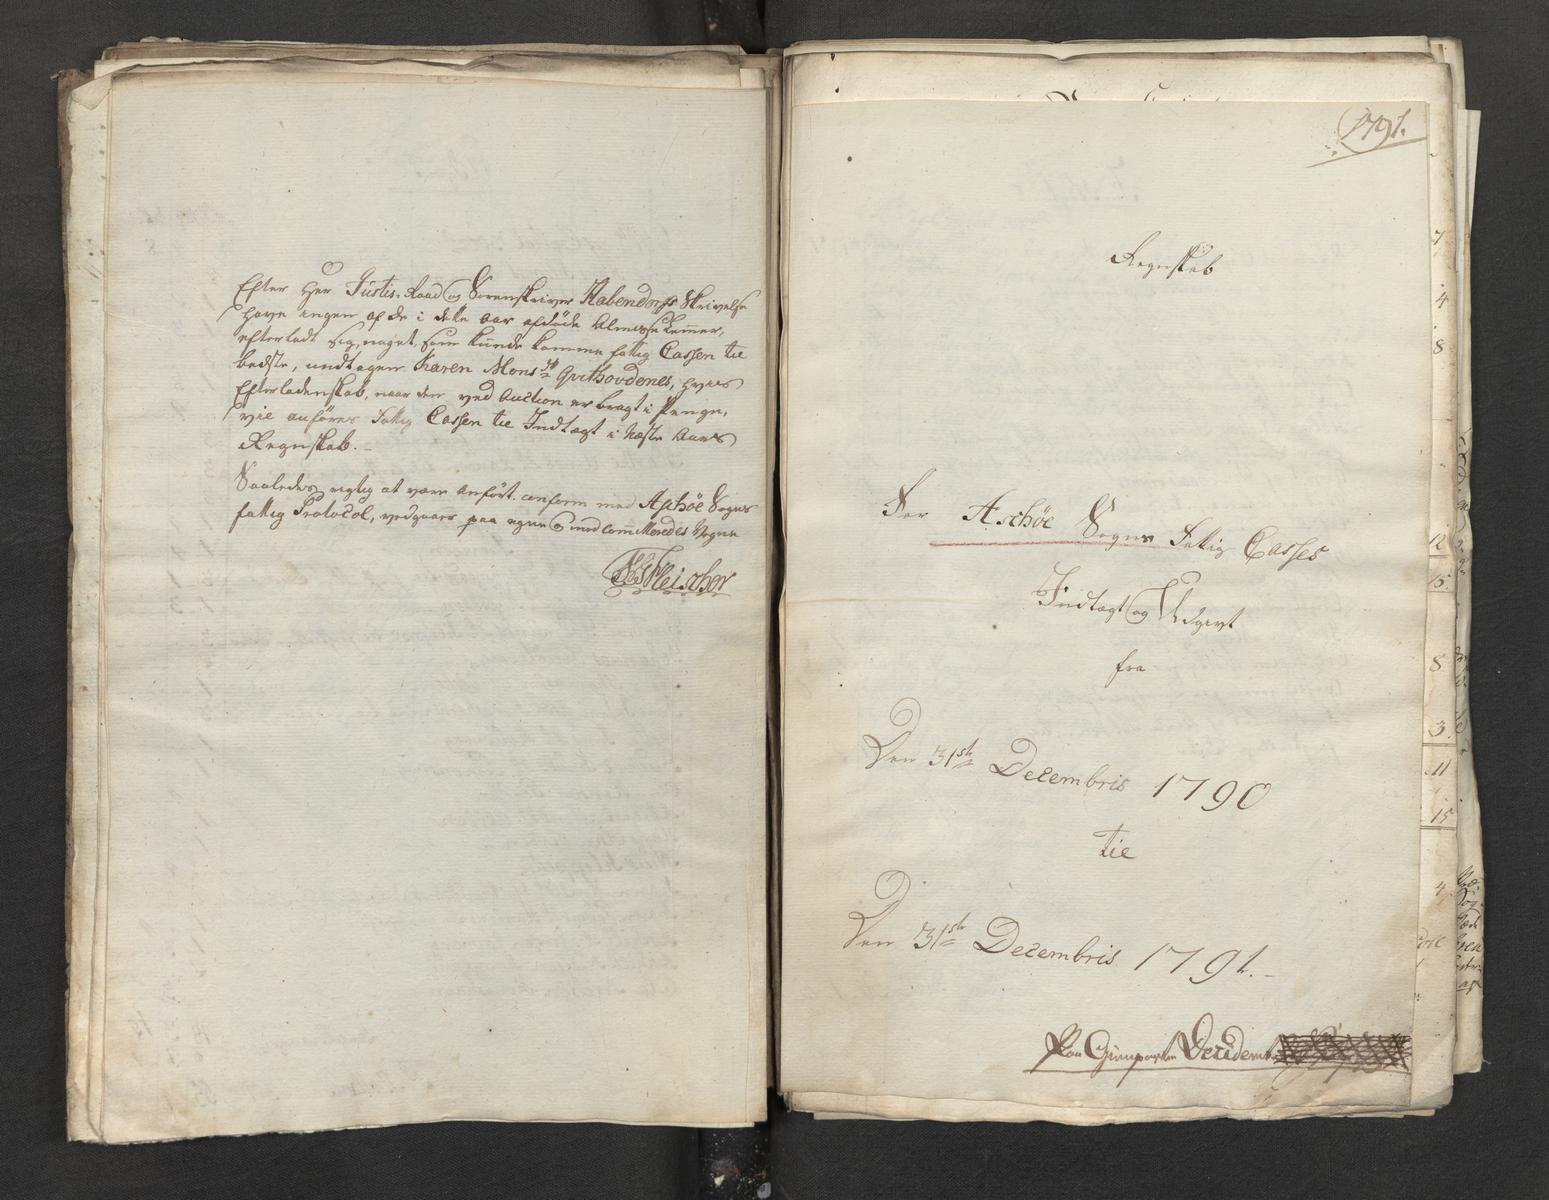 Efter Her Justis-Raad og Sorenskriver Rabendorfs Skrivelse
have ingen af de i dette Aar afdøde Almisse Lemer,
efterladt sig noget, som kunde komme fattig Cassen tie
bedste, undtagen Karen Mons dr Qvithovdenes, hvis
Efterladenskab, naar den ved Auction er bragt i Penge,
vie anføres fattig Cassen tie Indtægt i Næste Aars
Regnskab.
Saaledes rigtig at være anført conform med Aschöe Sogns
fattig Protocol, vedgaaer paa egne og med Committeredes Vegne
Fleischer
1791.
Regnskab
For Aschöe Sogns Fattig Casses
Indtægt og Udgivt
fra
Den 31ste Decembris 1790
tie
Den 31ste Decembris 1791.
7
4
8
12
15.
8
3.
11
15
4